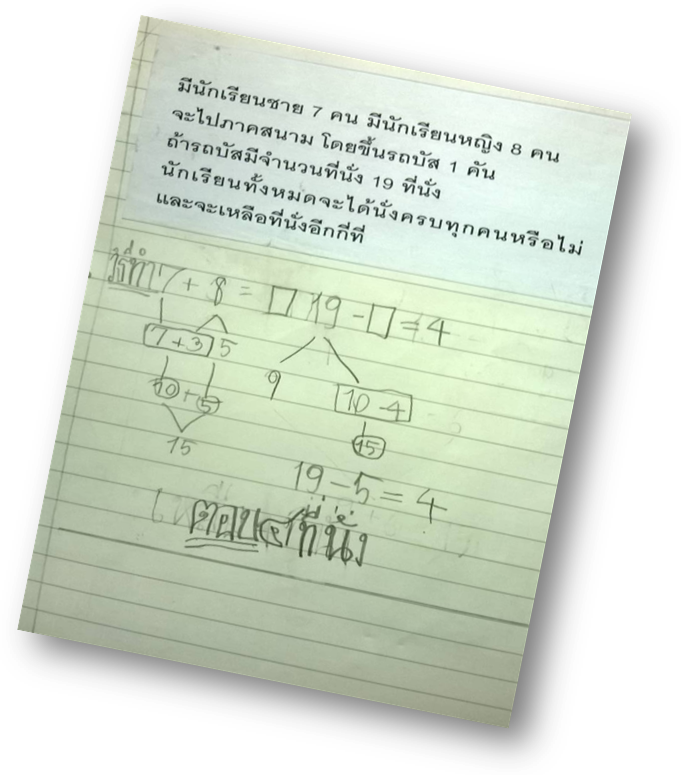 มีนักเรียนชาย 7 คน มีนักเรียนหญิง 8 คน
จะไปภาคสนาม โดยขึ้นรถบัส 1 คัน
ถ้ารถบัสมีจำนวนที่นั่ง 19 ที่นั่ง
นักเรียนทั้งหมดจะได้นั่งครบทุกคนหรือไม่
และจะเหลือที่นั่งอีกกี่ที่
วิธีทำ 7 + 8 = □ 19 - □ = 4
7 + 3 5 9 10 - 4
10 + 5 15
15
19 - 5 = 4
ตอบ ๔ ที่นั่ง